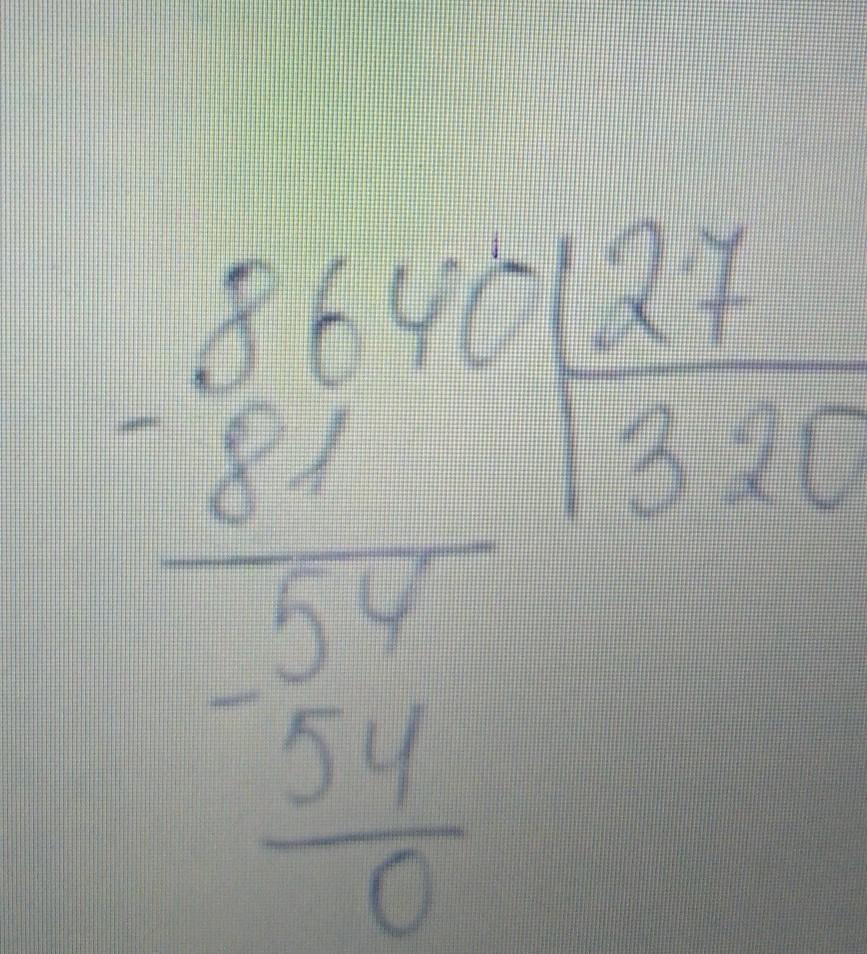 8640 27
- 81 320
54
- 54
0